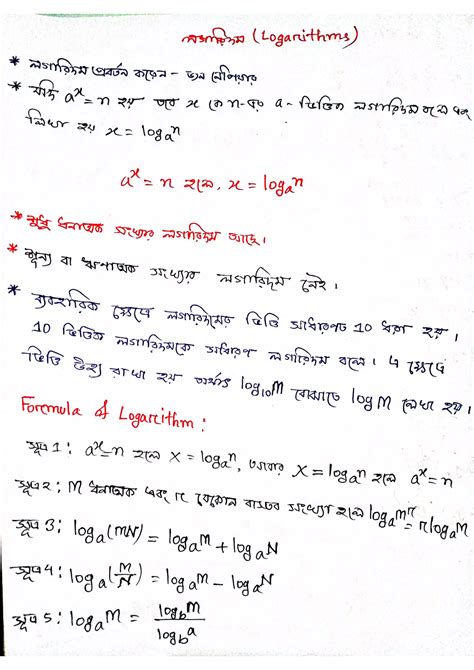 লগারিদম (Logarithms)
* লগারিদম প্রবর্তন করেন - জন নেপিয়ার
* যদি aˣ = n হয় তবে x কে n-এর a - ভিত্তিক লগারিদম বলে এবং
লিখা হয় x = logₐn
aˣ = n হলে, x = logₐn
* শুধু ধনাত্মক সংখ্যার লগারিদম আছে।
* শূন্য বা ঋণাত্মক সংখ্যার লগারিদম নেই।
* ব্যবহারিক ক্ষেত্রে লগারিদমের ভিত্তি সাধারণত 10 ধরা হয়।
10 ভিত্তিক লগারিদমকে সাধারণ লগারিদম বলে। এ ক্ষেত্রে
ভিত্তি উহ্য রাখা হয় অর্থাৎ log₁₀M বোঝাতে logM লেখা হয়।
Formula of Logarithm:
সূত্র 1: aˣ=n হলে X = logₐn, আবার X = logₐn হলে aˣ = n
সূত্র 2: M ধনাত্মক এবং r যেকোন বাস্তব সংখ্যা হলে logₐMʳ = r logₐM
সূত্র 3: logₐ(MN) = logₐM + logₐN
সূত্র 4: logₐ(M/N) = logₐM - logₐN
সূত্র 5: logₐM = log_bM / log_ba